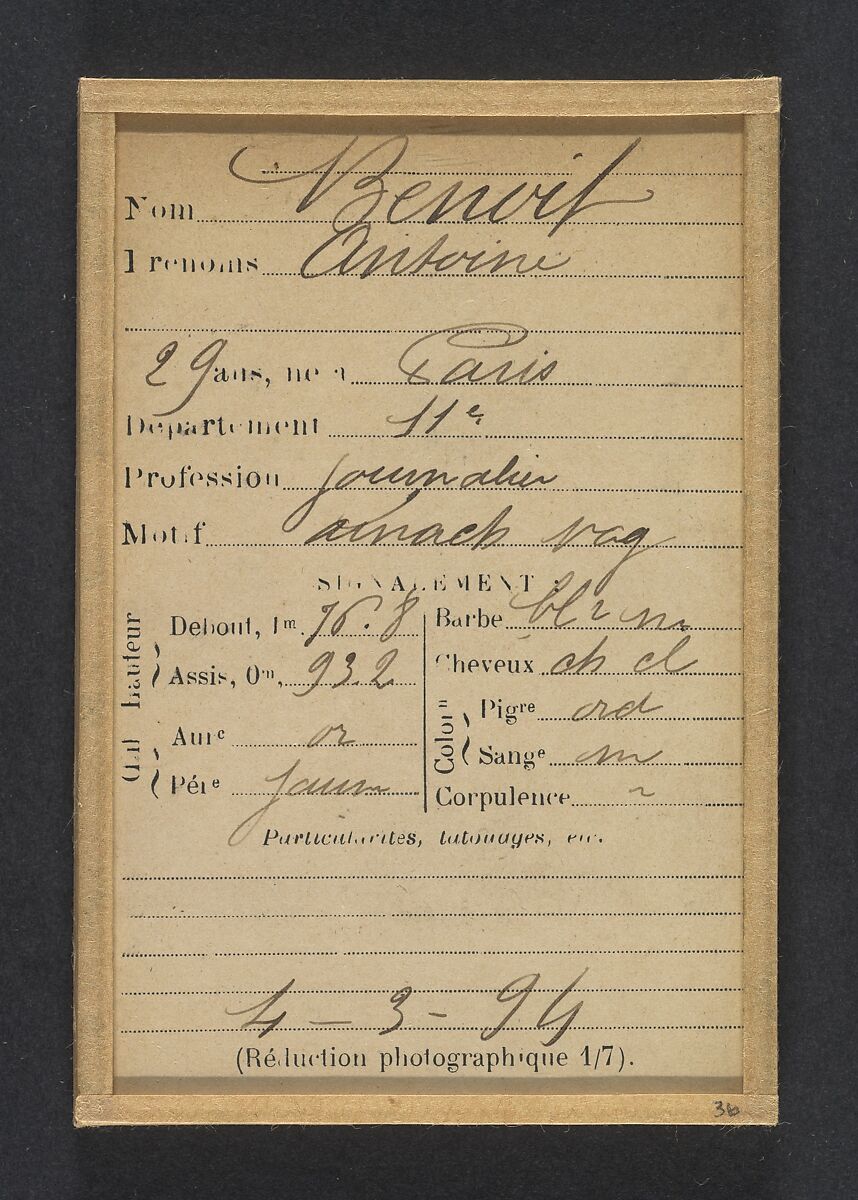 Nom Benoit
Prénoms Antoine
29 ans, né à Paris
Département 11e
Profession journalier
Motif anarch vag
SIGNALEMENT :
Hauteur
Debout, 1m. 76.8
Assis, 0m, 93.2
Œil
Aure or
Pére jaun
Barbe bl m
Cheveux ch cl
Coloron
Pigre ord
Sange m
Corpulence
Particularités, tatouages, etc.
4-3-94
(Réduction photographique 1/7).